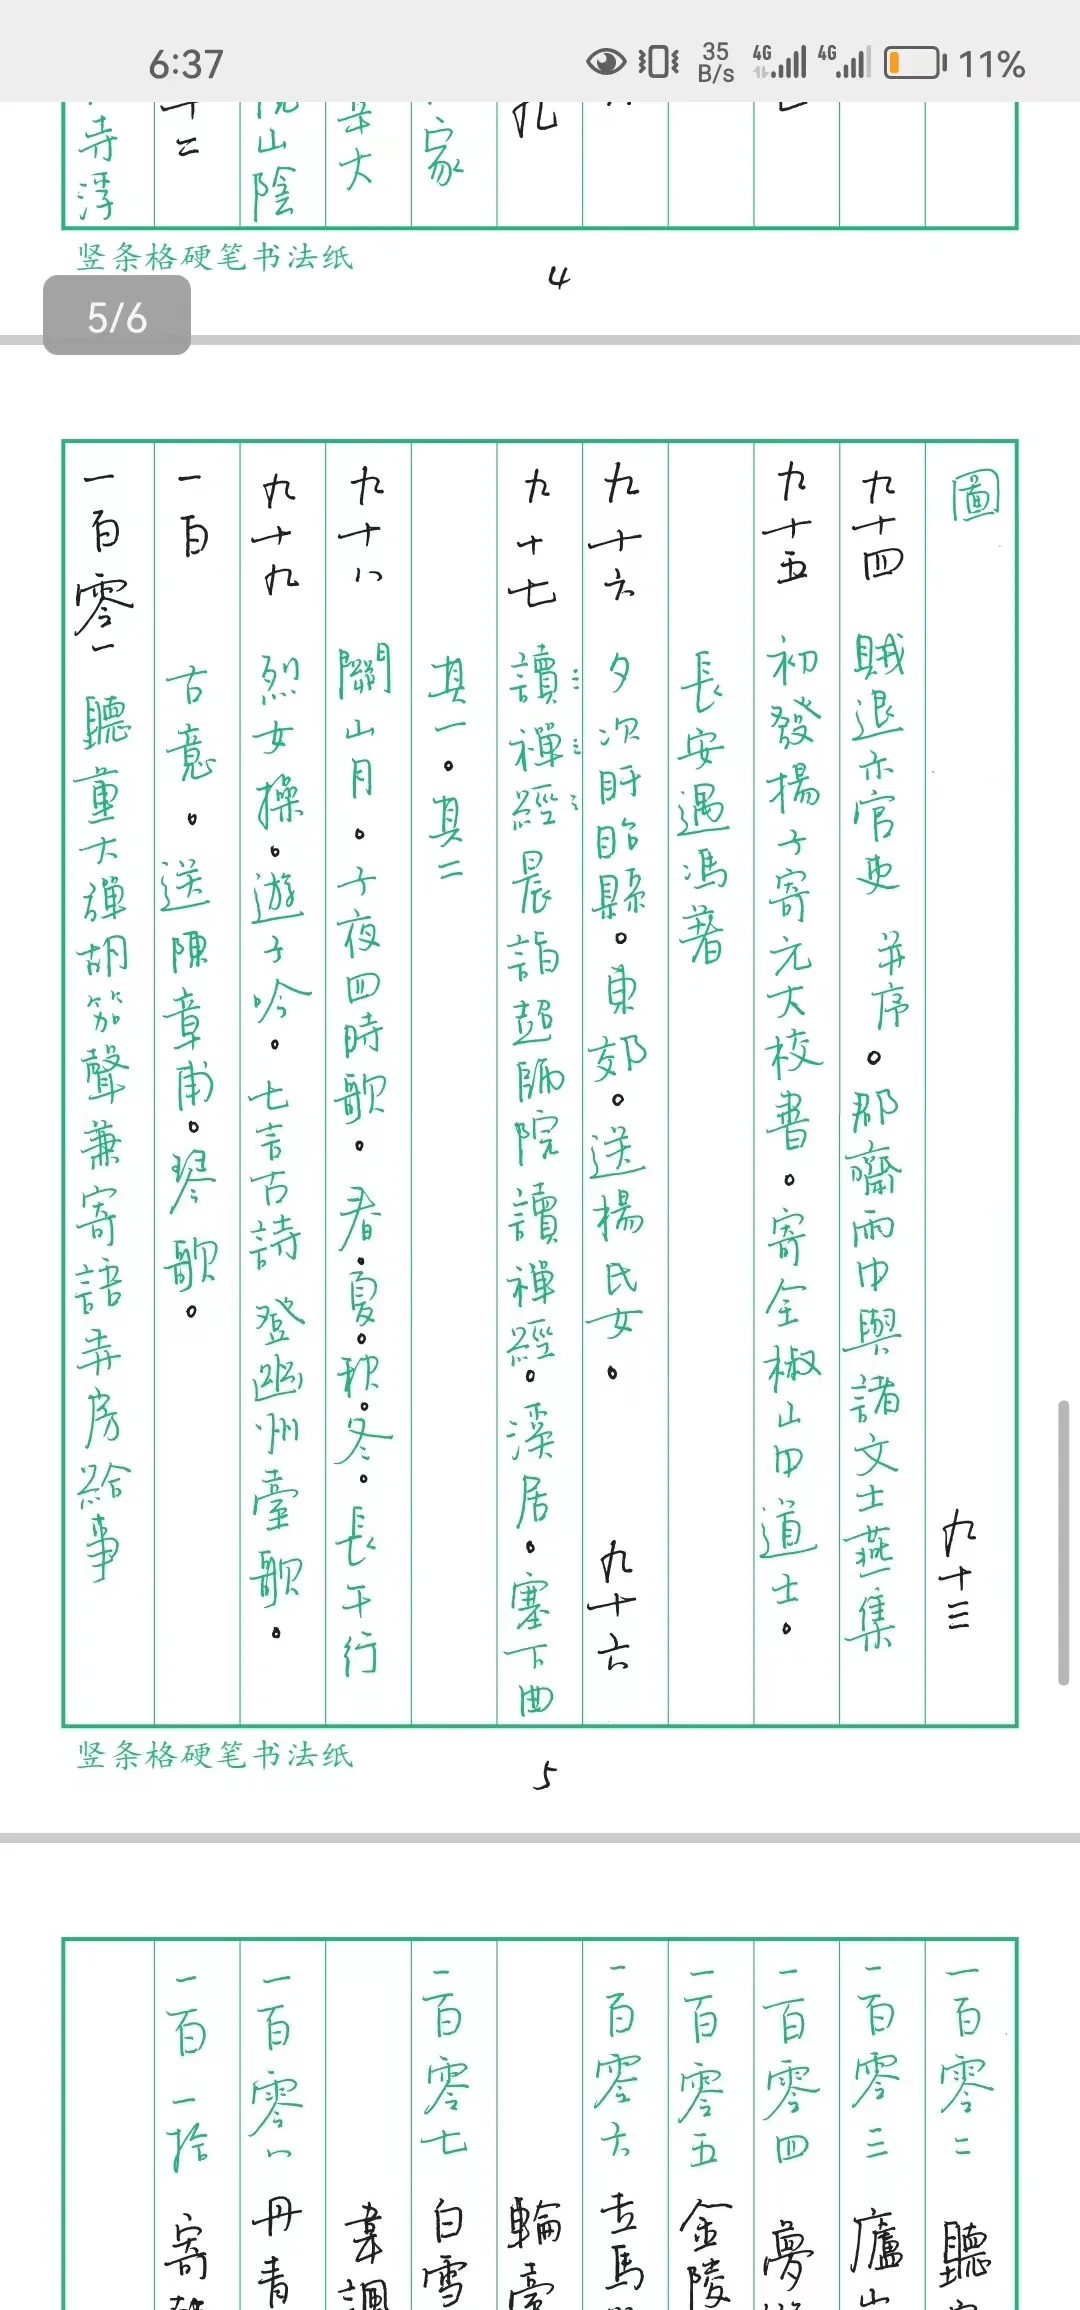 6:37
35 B/s
4G
4G
11%
九
家
大
山陰
十二
寺浮
竖条格硬笔书法纸
4
5/6
圖 九十三
九十四 賊退示官吏 并序。郡齋雨中與諸文士燕集
九十五 初發揚子寄元大校書。寄全椒山中道士。
長安遇馮著
九十六 夕次盱眙縣。東郊。送楊氏女。 九十六
九十七 讀禪經晨詣超師院讀禪經。溪居。塞下曲
其一。其二
九十八 關山月。子夜四時歌。春。夏。秋。冬。長干行
九十九 烈女操。遊子吟。七言古詩 登幽州臺歌。
一百 古意。送陳章甫。琴歌。
一百零一 聽董大彈胡笳聲兼寄語弄房給事
竖条格硬笔书法纸
5
一百零二 聽
一百零三 廬山
一百零四 夢
一百零五 金陵
一百零六 走馬
輪臺
一百零七 白雪
韋諷
一百零八 丹青
一百一拾 寄韓